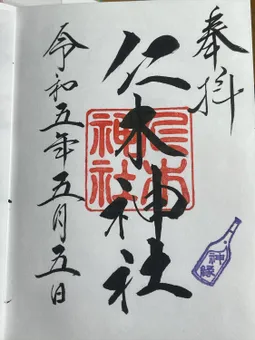 奉拝
仁木神社
仁木
神社
令和五年五月五日
神縁